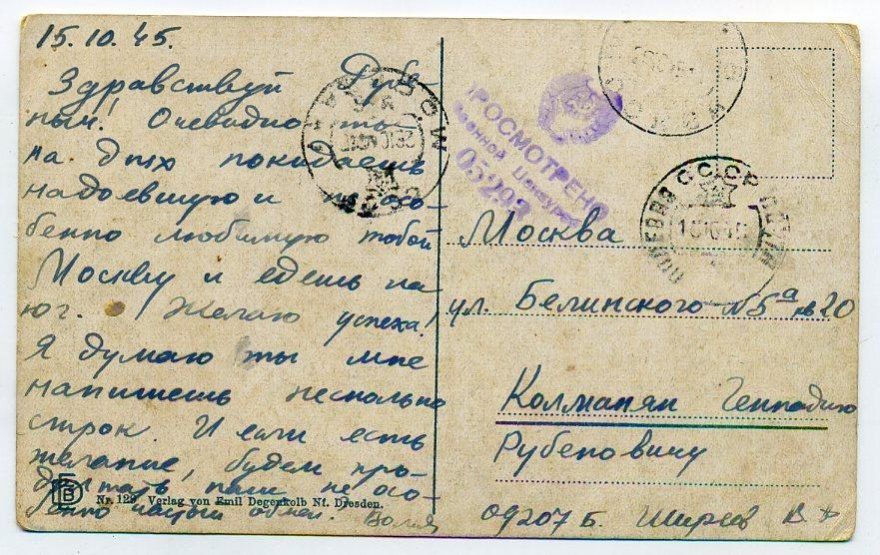 15.10.45.
Здравствуй Руб-
ным! Очевидно ты
на днях покидаешь
надоевшую и не осо-
бенно любимую тобой
Москву и едешь на
юг. Желаю успеха!
Я думаю ты мне
напишешь несколько
строк. И если есть
желание, будем про-
должать наш не осо-
бенно частый обмен.
ПРОСМОТРЕНО
Военной Цензурой
05293
МОСКВА
СССР
ПОЛЕВАЯ ПОЧТА
Москва
ул. Белинского №5а кв 20
Колманян Геннадию
Рубеновичу
09207 Б. Ширяев В
Nr. 129 Verlag von Emil Degenkolb Nf. Dresden.